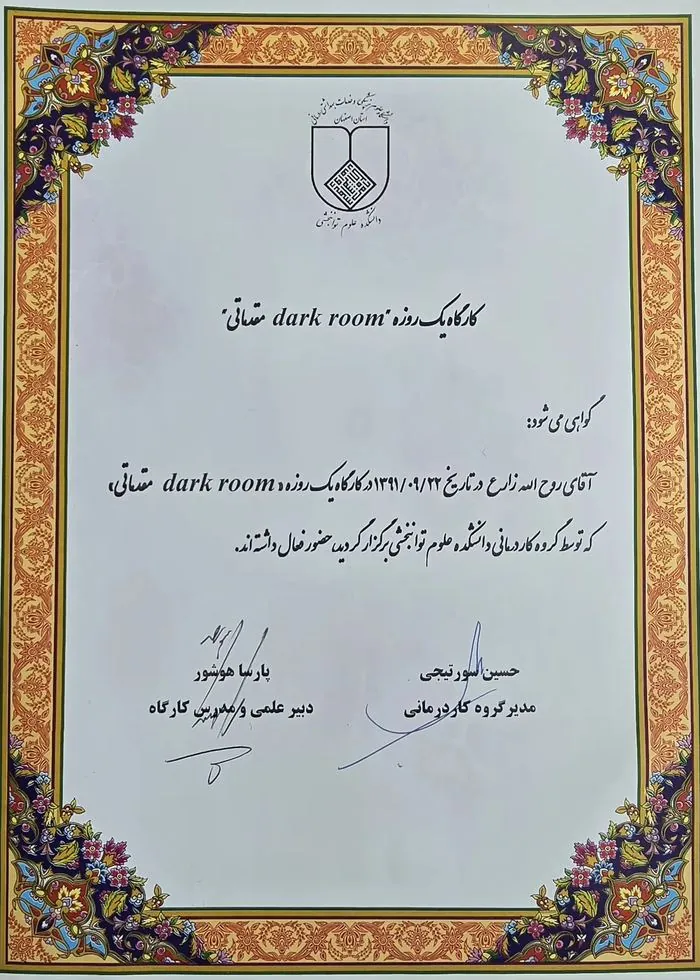 دانشگاه علوم پزشکی و خدمات بهداشتی درمانی
استان اصفهان
دانشکده علوم توانبخشی
کارگاه یک روزه "dark room مقدماتی"
گواهی می شود:
آقای روح الله زارع در تاریخ ۱۳۹۱/۰۹/۲۲ در کارگاه یک روزه «dark room مقدماتی»
که توسط گروه کاردرمانی دانشکده علوم توانبخشی برگزار گردید، حضور فعال داشته اند.
حسین سورتیجی
مدیر گروه کاردرمانی
پارسا هوشور
دبیر علمی و مدرس کارگاه